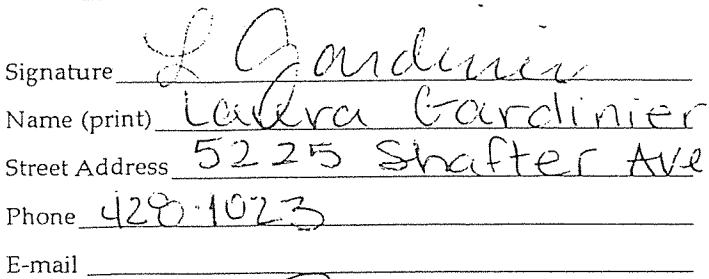 Signature L Gardinier
Name (print) Laura Gardinier
Street Address 5225 Shafter Ave
Phone 428-1023
E-mail